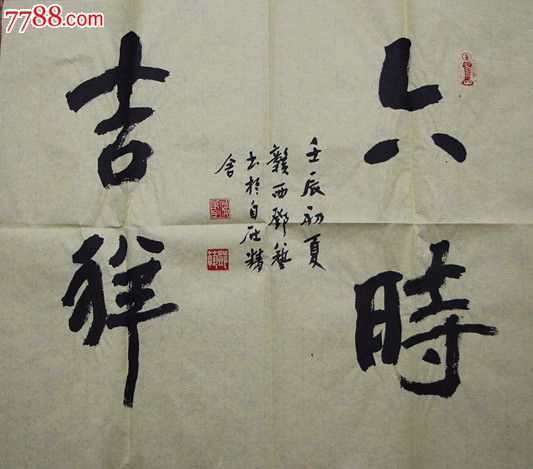 7788.com
六時
吉祥
壬辰初夏
贛西鄧藝
书於自在精
舍